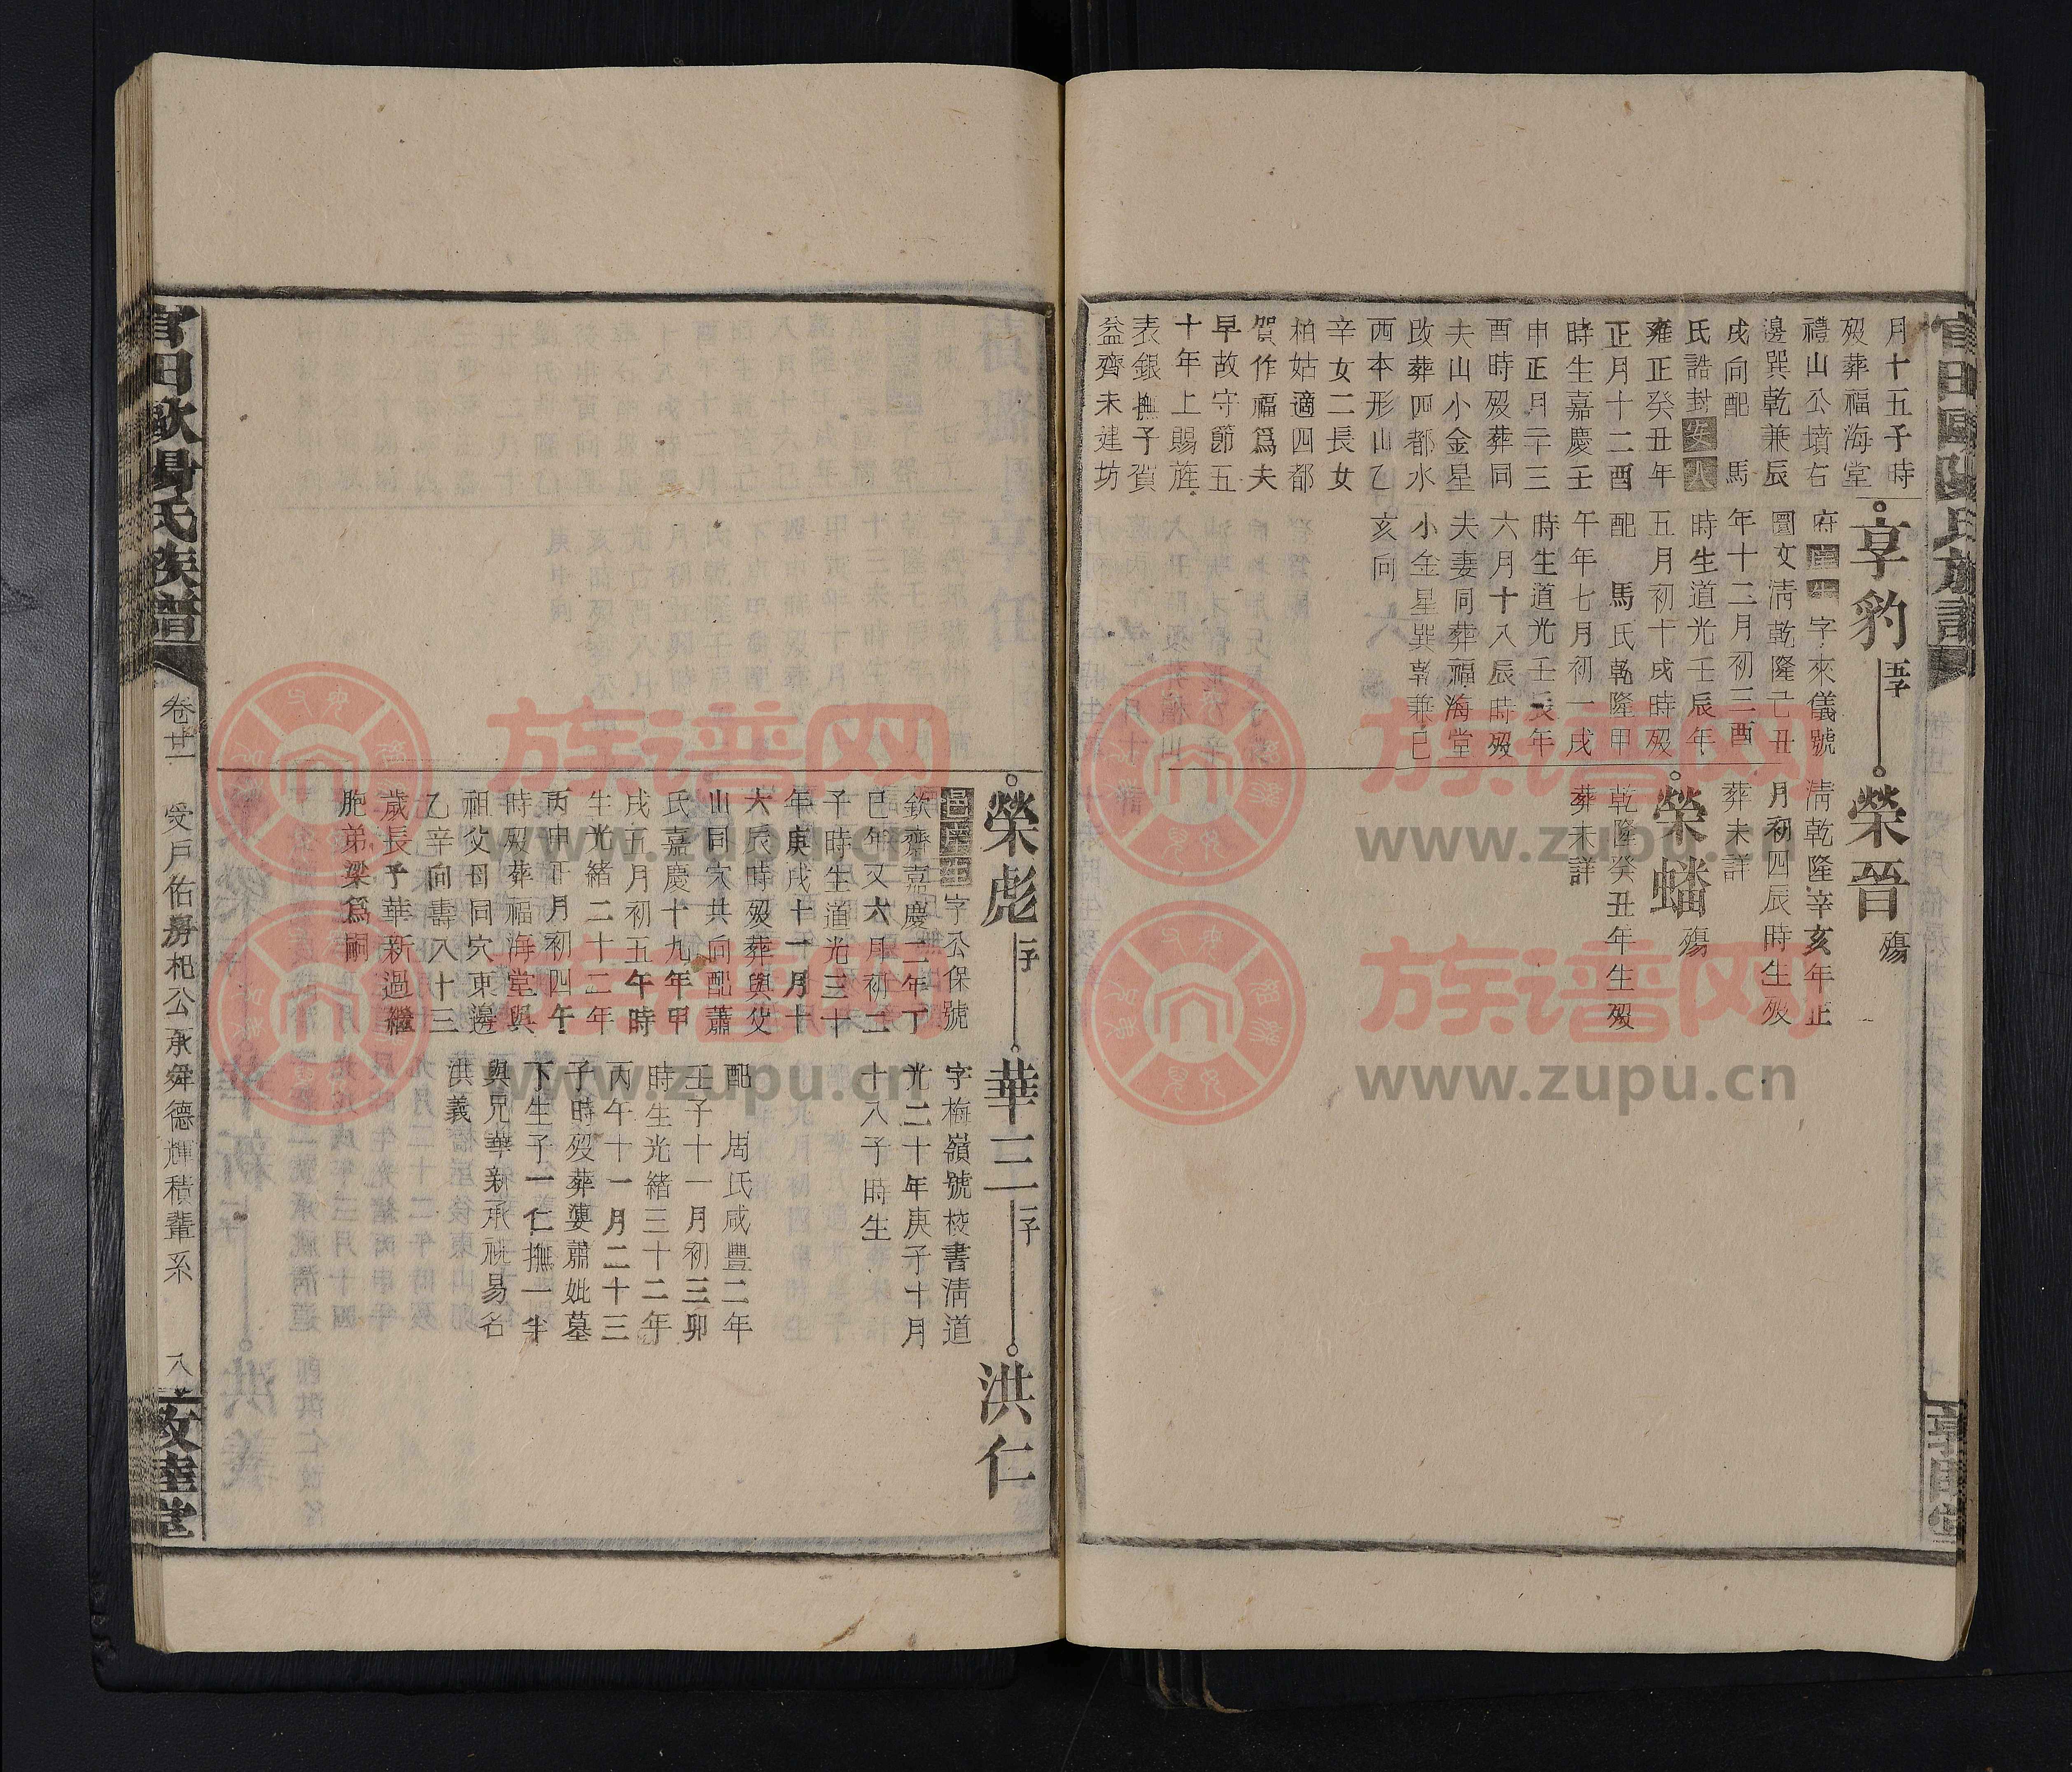 官田歐陽氏族譜
月十五子時
歿葬福海堂
禮山公墳右
邊巽乾兼辰
戌向配 馬
氏誥封安人
雍正癸丑年
正月十二酉
時生嘉慶壬
申正月二十三
酉時歿葬同
夫山小金星
改葬四都水
西本形山乙
辛女二長女
柏姑適四都
賀作福爲夫
早故守節五
十年上賜旌
表銀撫子賀
益齊未建坊
享豹
五子
字來儀號
圖文清乾隆己丑
年十二月初三酉
時生道光壬辰年
五月初十戌時歿
配 馬氏乾隆甲
午年七月初一戌
時生道光壬辰年
六月十八辰時歿
夫妻同葬福海堂
小金星巽乾兼巳
亥向
榮晉
殤
清乾隆辛亥年正
月初四辰時生歿
葬未詳
榮蟠
殤
乾隆癸丑年生歿
葬未詳
榮彪
二子
邑庠生字公保號
欽齋嘉慶二年丁
巳年又六月初二
子時生道光三十
年庚戌十一月十
六辰時歿葬與父
山同穴共向配蕭
氏嘉慶十九年甲
戌五月初五午時
生光緒二十二年
丙申正月初四午
時歿葬福海堂與
祖父母同穴東邊
乙辛向壽八十三
歲長子華新過繼
胞弟梁爲嗣
華三
二子
字梅嶺號校書清道
光二十年庚子十月
十八子時生
配 周氏咸豐二年
壬子十一月初三卯
時生光緒三十二年
丙午十一月二十三
子時歿葬婆蕭妣墓
下生子一仁撫一半
與兄華新承祧易名
洪義
洪仁
官田歐陽氏族譜
卷廿一
受戶佑房相公承舜德輝積輩系
八
敦睦堂
族谱网
www.zupu.cn
族谱网
www.zupu.cn
族谱网
www.zupu.cn
族谱网
www.zupu.cn